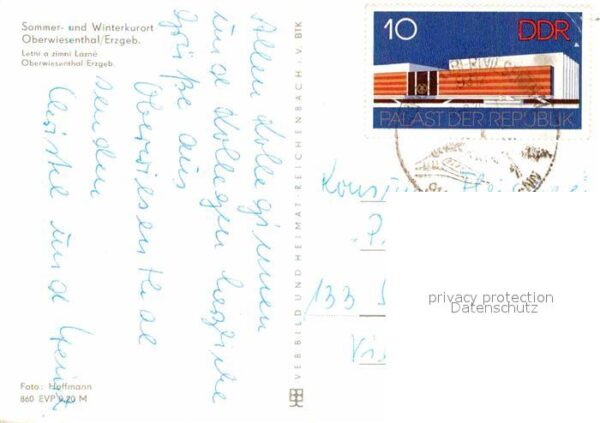 Sommer- und Winterkurort
Oberwiesenthal/Erzgeb.
Letni a zimni Lazně
Oberwiesenthal Erzgeb.
Allen Kolleginnen
und Kollegen herzliche
Grüße aus
Oberwiesenthal
senden
Christel und Heinz
Foto: Hoffmann
860 EVP 0,20 M
VEB BILD UND HEIMAT REICHENBACH i. V. BTK
10
DDR
PALAST DER REPUBLIK
133
privacy protection
Datenschutz